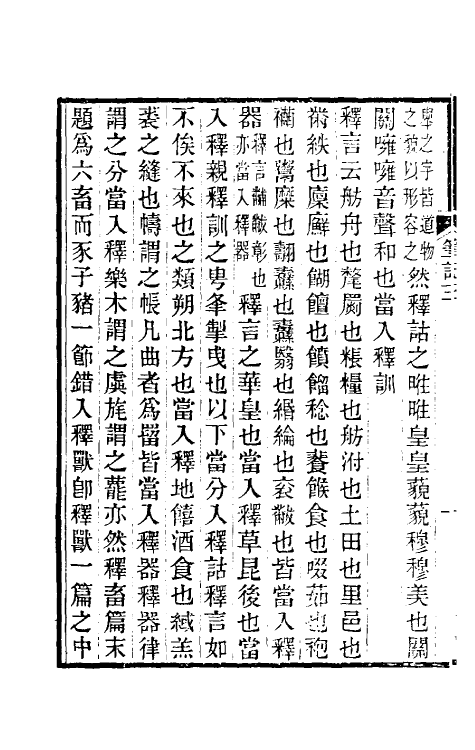 舉之字皆道物
之貌以形容之
然釋詁之暀暀皇皇藐藐穆穆美也關
關噰噰音聲和也當入釋訓
釋言云舫舟也氂罽也粻糧也舫泭也土田也里邑也
黹紩也廩廯也餬饘也饙餾稔也餥餱食也啜茹也袍
襺也鬻糜也翿纛也纛翳也緡綸也袞黻也皆當入釋
器
釋言黼黻彰也
亦當入釋器
釋言之華皇也當入釋草昆後也當
入釋親釋訓之甹夆掣曳也以下當分入釋詁釋言如
不俟不來也之類朔北方也當入釋地饎酒食也緎羔
裘之縫也幬謂之帳凡曲者爲罶皆當入釋器釋器律
謂之分當入釋樂木謂之虡旄謂之藣亦然釋畜篇末
題爲六畜而豕子豬一節錯入釋獸卽釋獸一篇之中